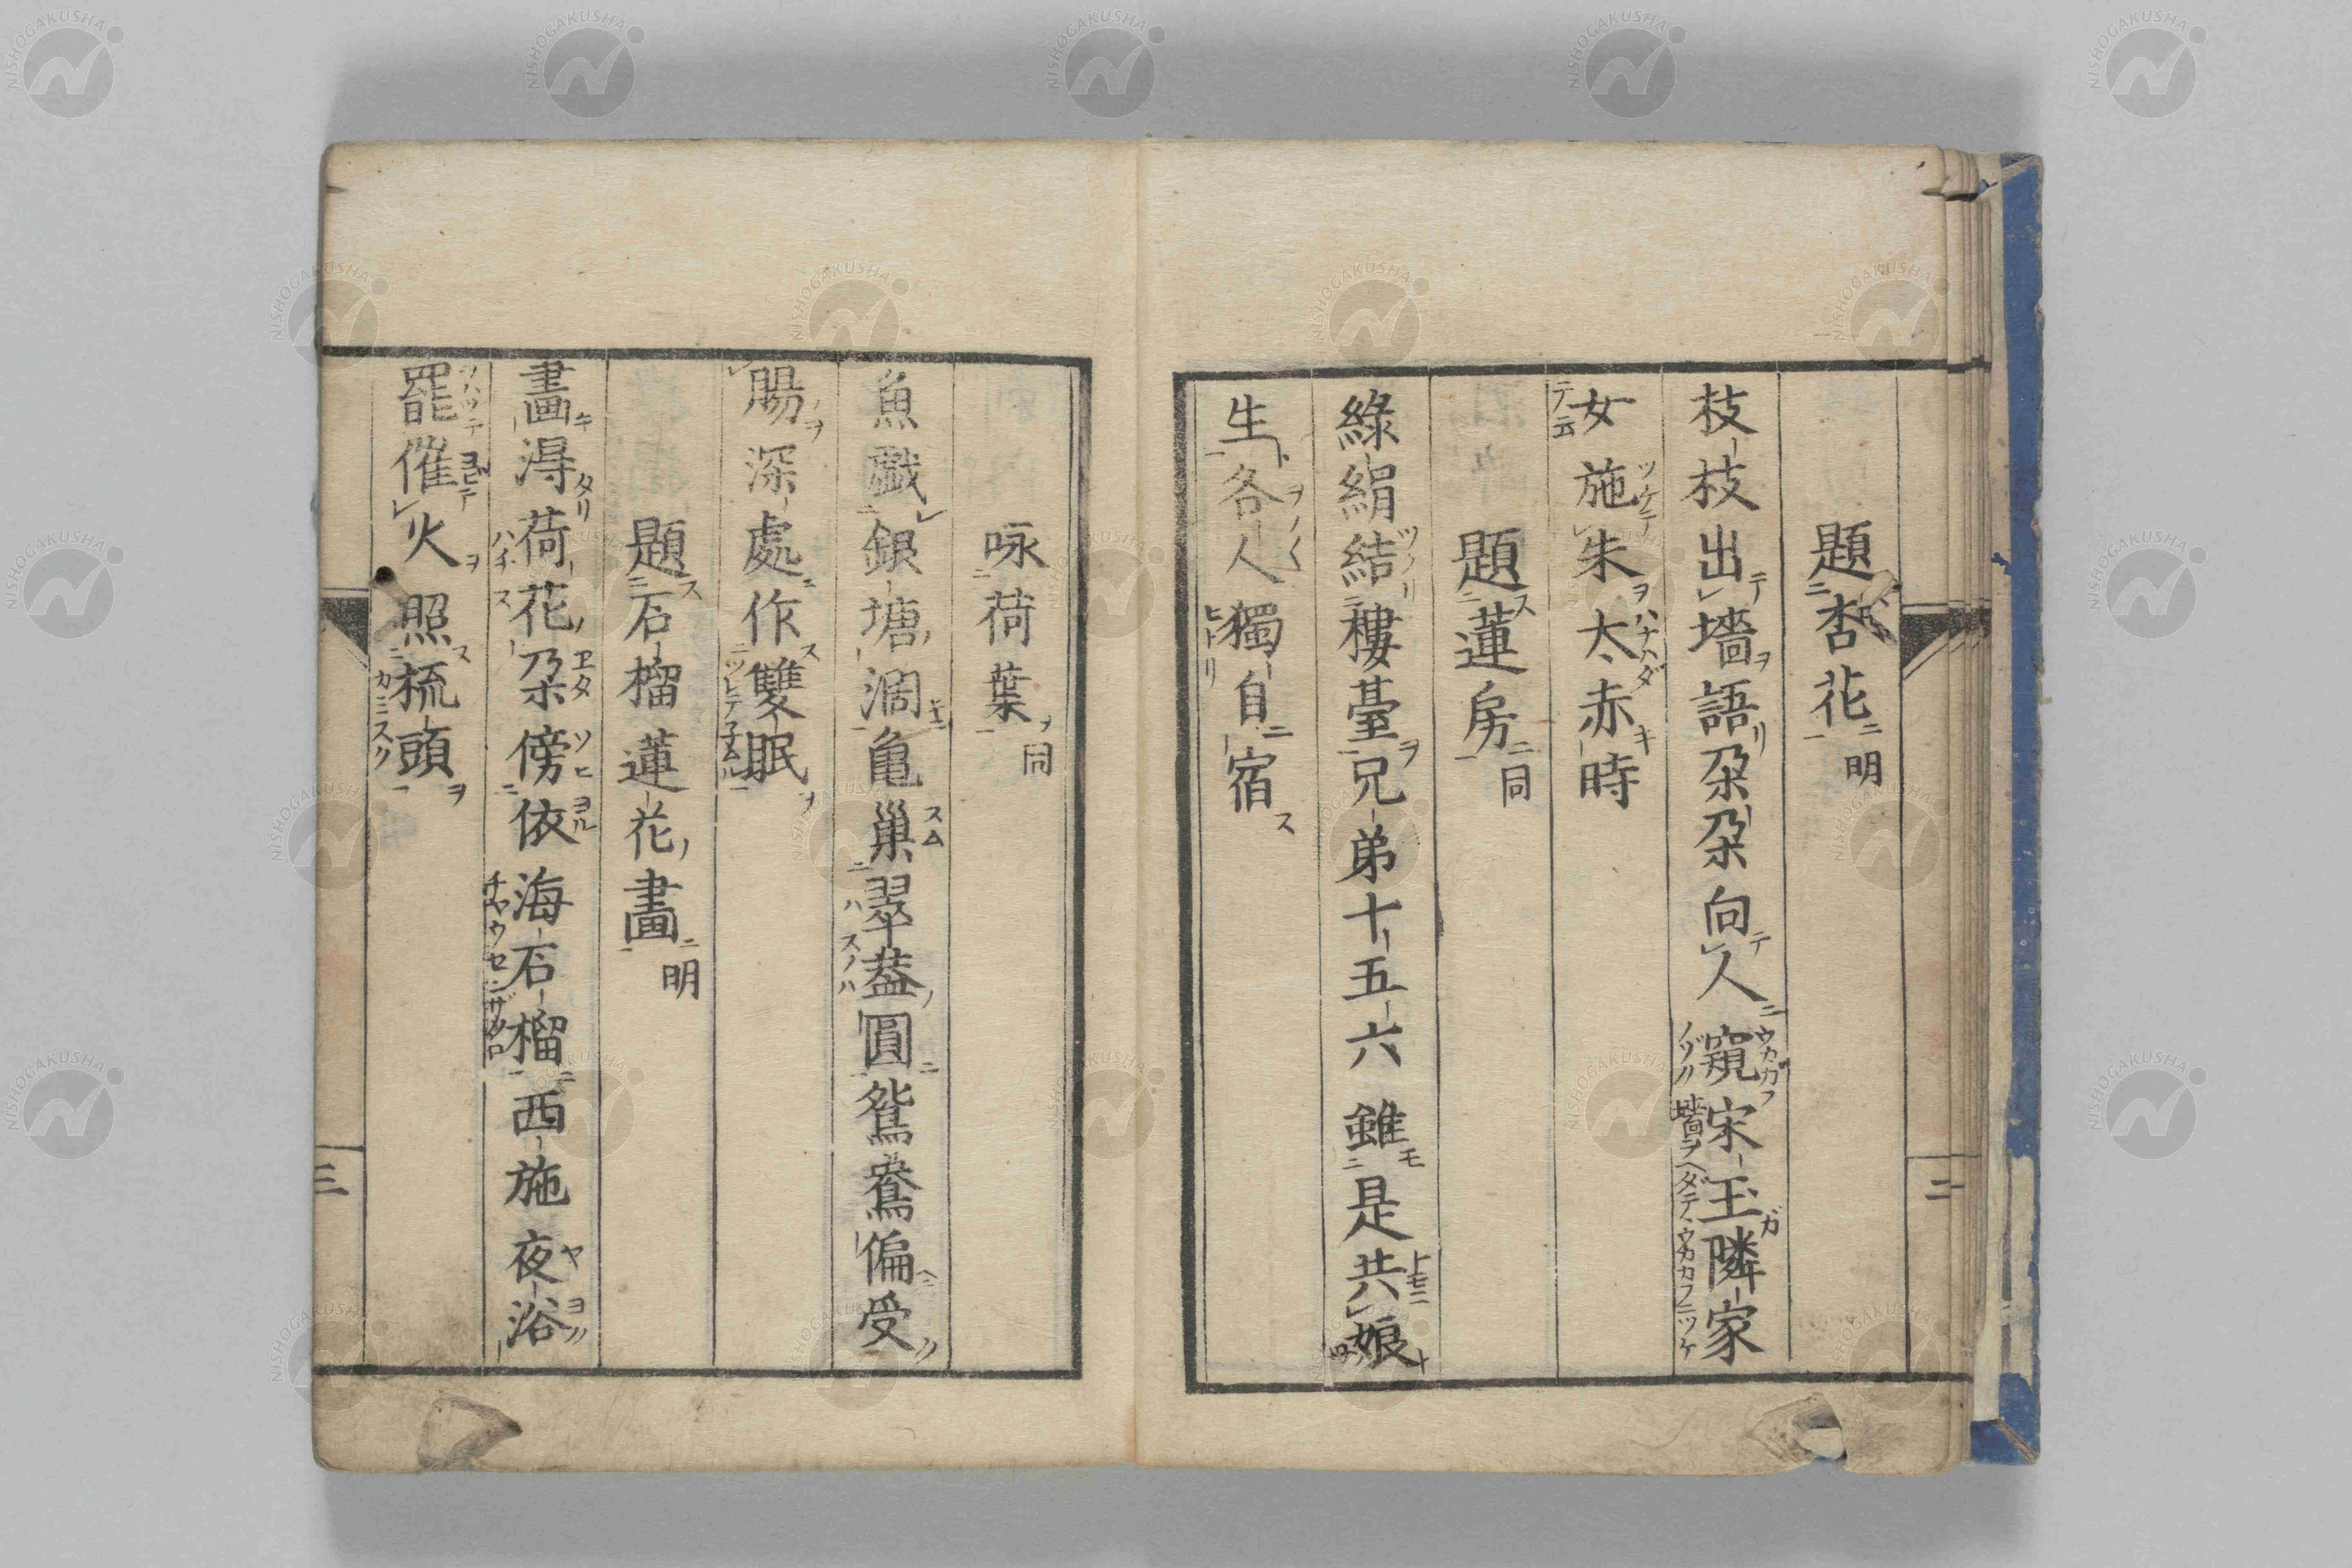 題杏花明
枝枝出墻語朶朶向人窺宋玉隣家
女施朱太赤時
題蓮房同
綠絹結樓臺兄弟十五六雖是共娘
生各人獨自宿
二
咏荷葉同
魚戱銀塘濶亀巢翠葢圓鴛鴦偏受
腸深處作雙眠
題石榴蓮花畫明
畵淂荷花朶傍依海石榴西施夜浴
罷催火照梳頭
三
NISHOGAKUSHA